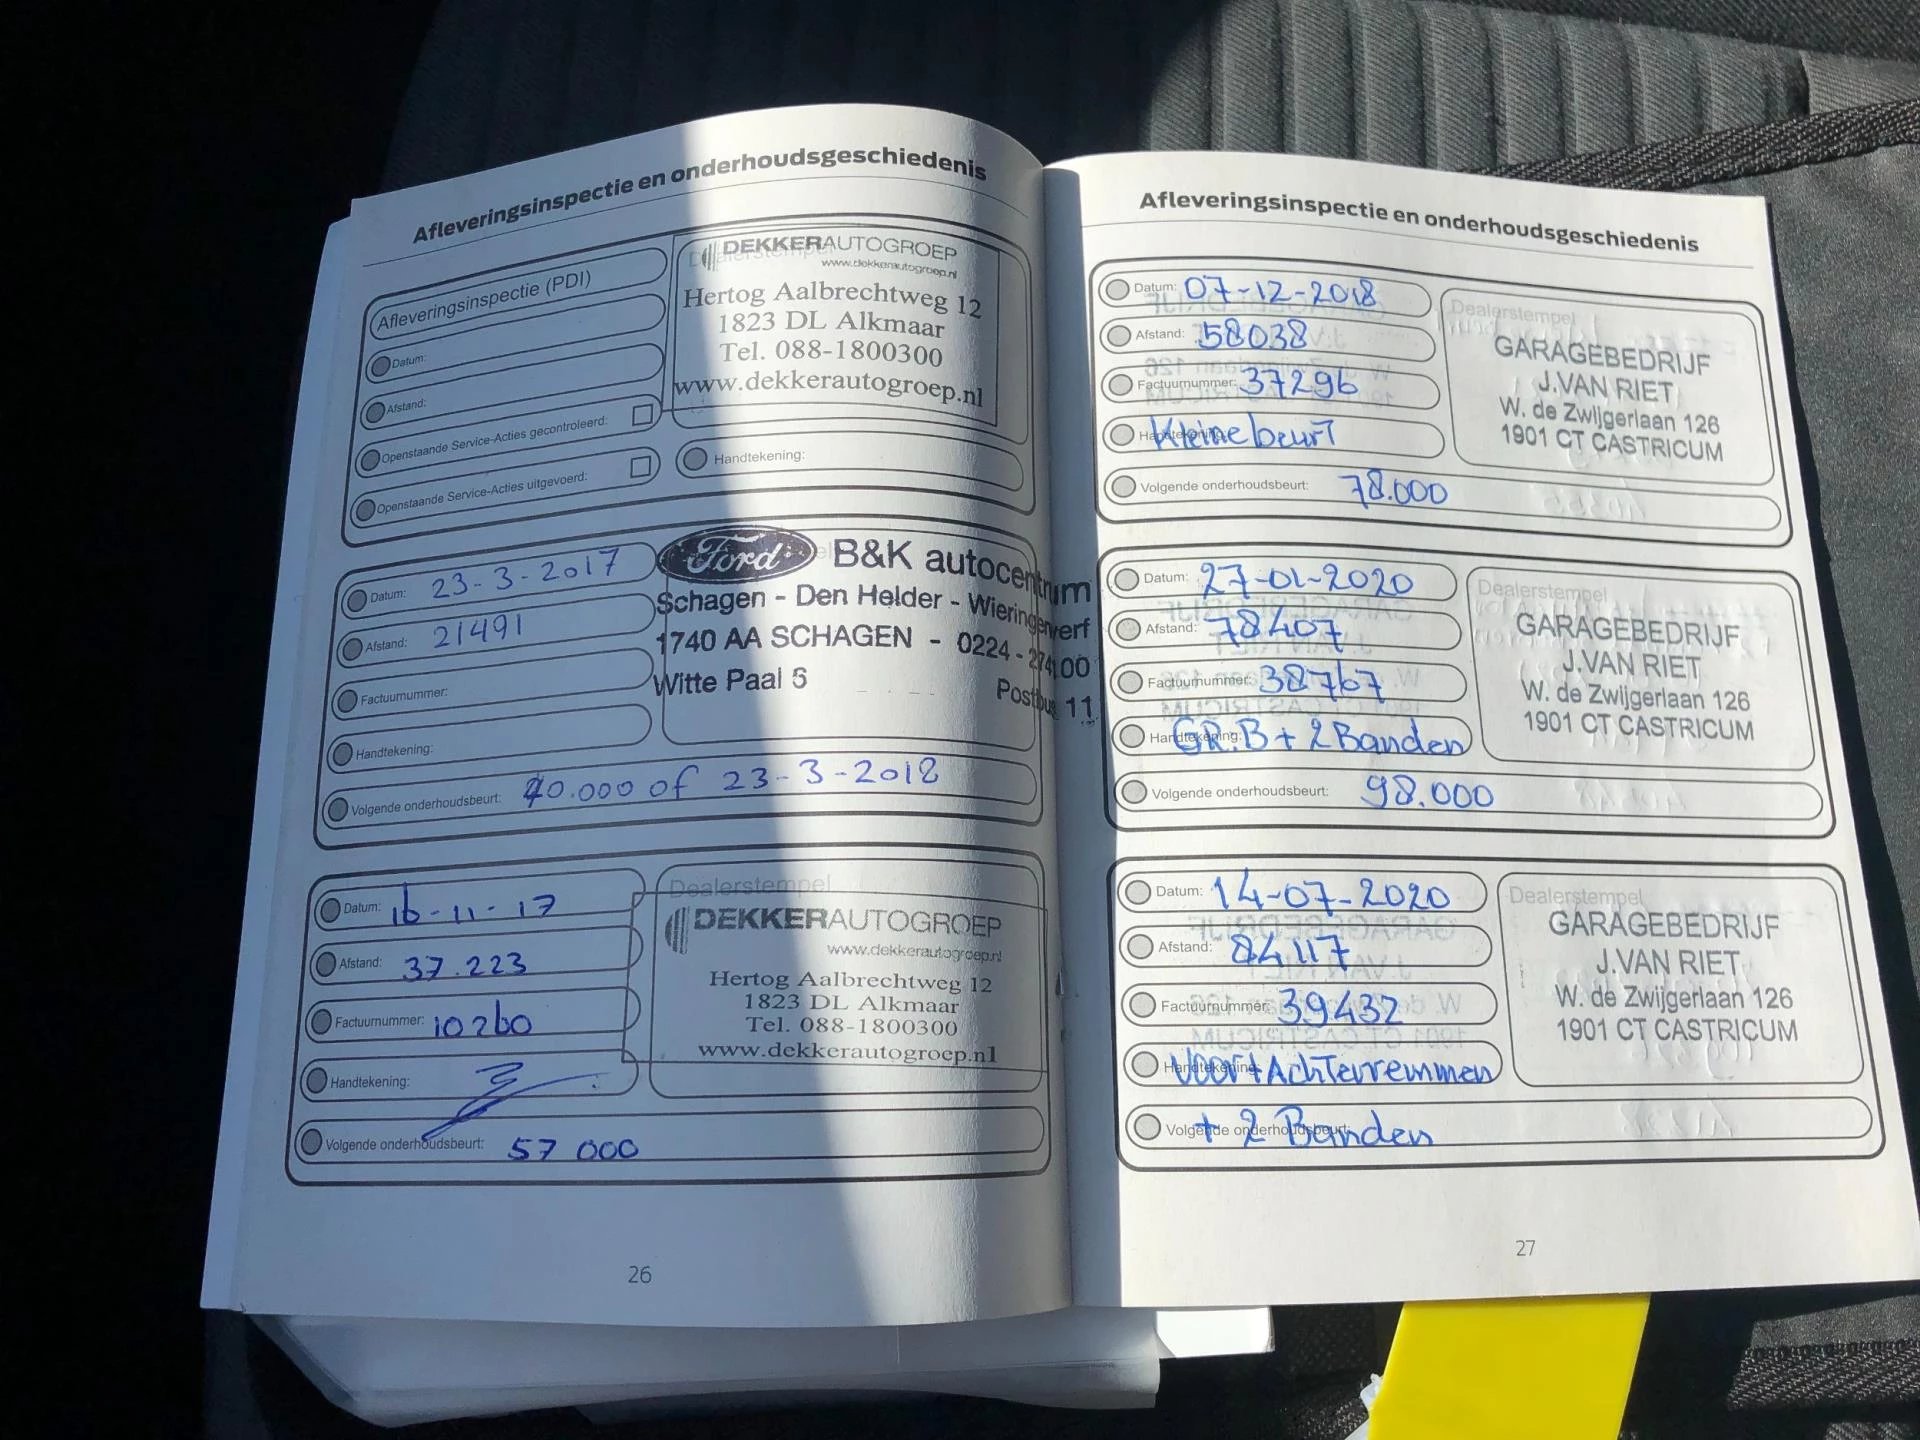 Afleveringsinspectie en onderhoudsgeschiedenis
Afleveringsinspectie (PDI)
Datum:
Afstand:
Openstaande Service-Acties gecontroleerd:
Openstaande Service-Acties uitgevoerd:
DEKKERAUTOGROEP
www.dekkerautogroep.nl
Hertog Aalbrechtweg 12
1823 DL Alkmaar
Tel. 088-1800300
www.dekkerautogroep.nl
Handtekening:
Datum: 23-3-2017
Afstand: 21491
Factuurnummer:
Handtekening:
Volgende onderhoudsbeurt: 40.000 of 23-3-2018
Ford B&K autocentrum
Schagen - Den Helder - Wieringerwerf
1740 AA SCHAGEN - 0224 - 274100
Witte Paal 5 Postbus 11
Datum: 16-11-17
Afstand: 37.223
Factuurnummer: 10260
Handtekening:
Volgende onderhoudsbeurt: 57 000
Dealerstempel
DEKKERAUTOGROEP
www.dekkerautogroep.nl
Hertog Aalbrechtweg 12
1823 DL Alkmaar
Tel. 088-1800300
www.dekkerautogroep.nl
26
Afleveringsinspectie en onderhoudsgeschiedenis
Datum: 07-12-2018
Afstand: 58038
Factuurnummer: 37296
Handtekening: Kleine beurt
Volgende onderhoudsbeurt: 78.000
Dealerstempel
GARAGEBEDRIJF
J.VAN RIET
W. de Zwijgerlaan 126
1901 CT CASTRICUM
Datum: 27-01-2020
Afstand: 78407
Factuurnummer: 38767
Handtekening: GR.B + 2 Banden
Volgende onderhoudsbeurt: 98.000
Dealerstempel
GARAGEBEDRIJF
J.VAN RIET
W. de Zwijgerlaan 126
1901 CT CASTRICUM
Datum: 14-07-2020
Afstand: 84117
Factuurnummer: 39432
Handtekening: Voor+Achterremmen
Volgende onderhoudsbeurt: + 2 Banden
Dealerstempel
GARAGEBEDRIJF
J.VAN RIET
W. de Zwijgerlaan 126
1901 CT CASTRICUM
27